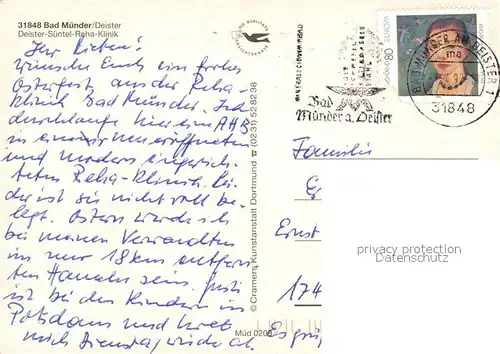 31848 Bad Münder/Deister
Deister-Süntel-Reha-Klinik
Ihr Lieben!
Wünsche Euch ein frohes
Osterfest aus der Reha-
Klinik Bad Münder. Ich
durchlaufe hier eine AHB
in einer neu eröffneten
und modern eingerich-
teten Reha-Klinik. Lei-
der ist sie nicht voll be-
legt. Ostern werde ich
bei meinen Verwandten
im nur 18 km entfern-
ten Hameln sein.
ist bei den Kindern in
Potsdam und
mich Dienstag wieder ab.
© Cramers Kunstanstalt Dortmund ☎ (0231) 528238
Müd 0208
80
Bad
Münder a. Deister
BAD MÜNDER AM DEISTER 1
ma
31848
Familie
Ernst
174
privacy protection
Persönlichkeitsschutz